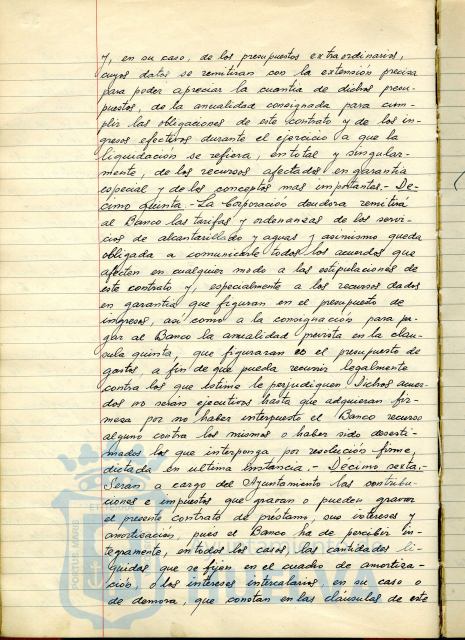 y, en su caso, de los presupuestos extraordinarios,
cuyos datos se remitiran con la extensión precisa
para poder apreciar la cuantia de dichos presu-
puestos, de la anualidad consignada para cum-
plir las obligaciones de este contrato y de los in-
gresos efectivos durante el ejercicio a que la
liquidación se refiera, en total y singular-
mente, de los recursos afectados en garantia
especial y de los conceptos mas importantes.- De-
cimo quinta.- La Corporación deudora remitirá
al Banco las tarifas y ordenanzas de los servi-
cios de alcantarillado y aguas y asinismo queda
obligada a comunicarle todos los acuerdos que
afecten en cualquier modo a las estipulaciones de
este contrato y, especialmente a los recursos dados
en garantia que figuran en el presupuesto de
ingresos, así como a la consignación para pa-
gar al Banco la anualidad prevista en la clau-
sula quinta, que figuraran en el presupuesto de
gastos, a fin de que pueda recurrir legalmente
contra los que estime le perjudiquen Dichos acuer-
dos no serán ejecutivos hasta que adquieran fir-
meza por no haber interpuesto el Banco recurso
alguno contra los mismos o haber sido desesti-
mados los que interponga por resolución firme,
dictada en ultima instancia.- Décimo sexta.-
Seran a cargo del Ayuntamiento las contribu-
ciones e impuestos que gravan o puedan gravar
el presente contrato de préstamo, sus intereses y
amortización, pues el Banco ha de percibir in-
tegramente, en todos los casos, las cantidades li-
quidas que se fijen en el cuadro de amortiza-
ción, o los intereses intercalarios, en su caso o
de demora, que constan en las cláusulas de este
PORTUS MARIS